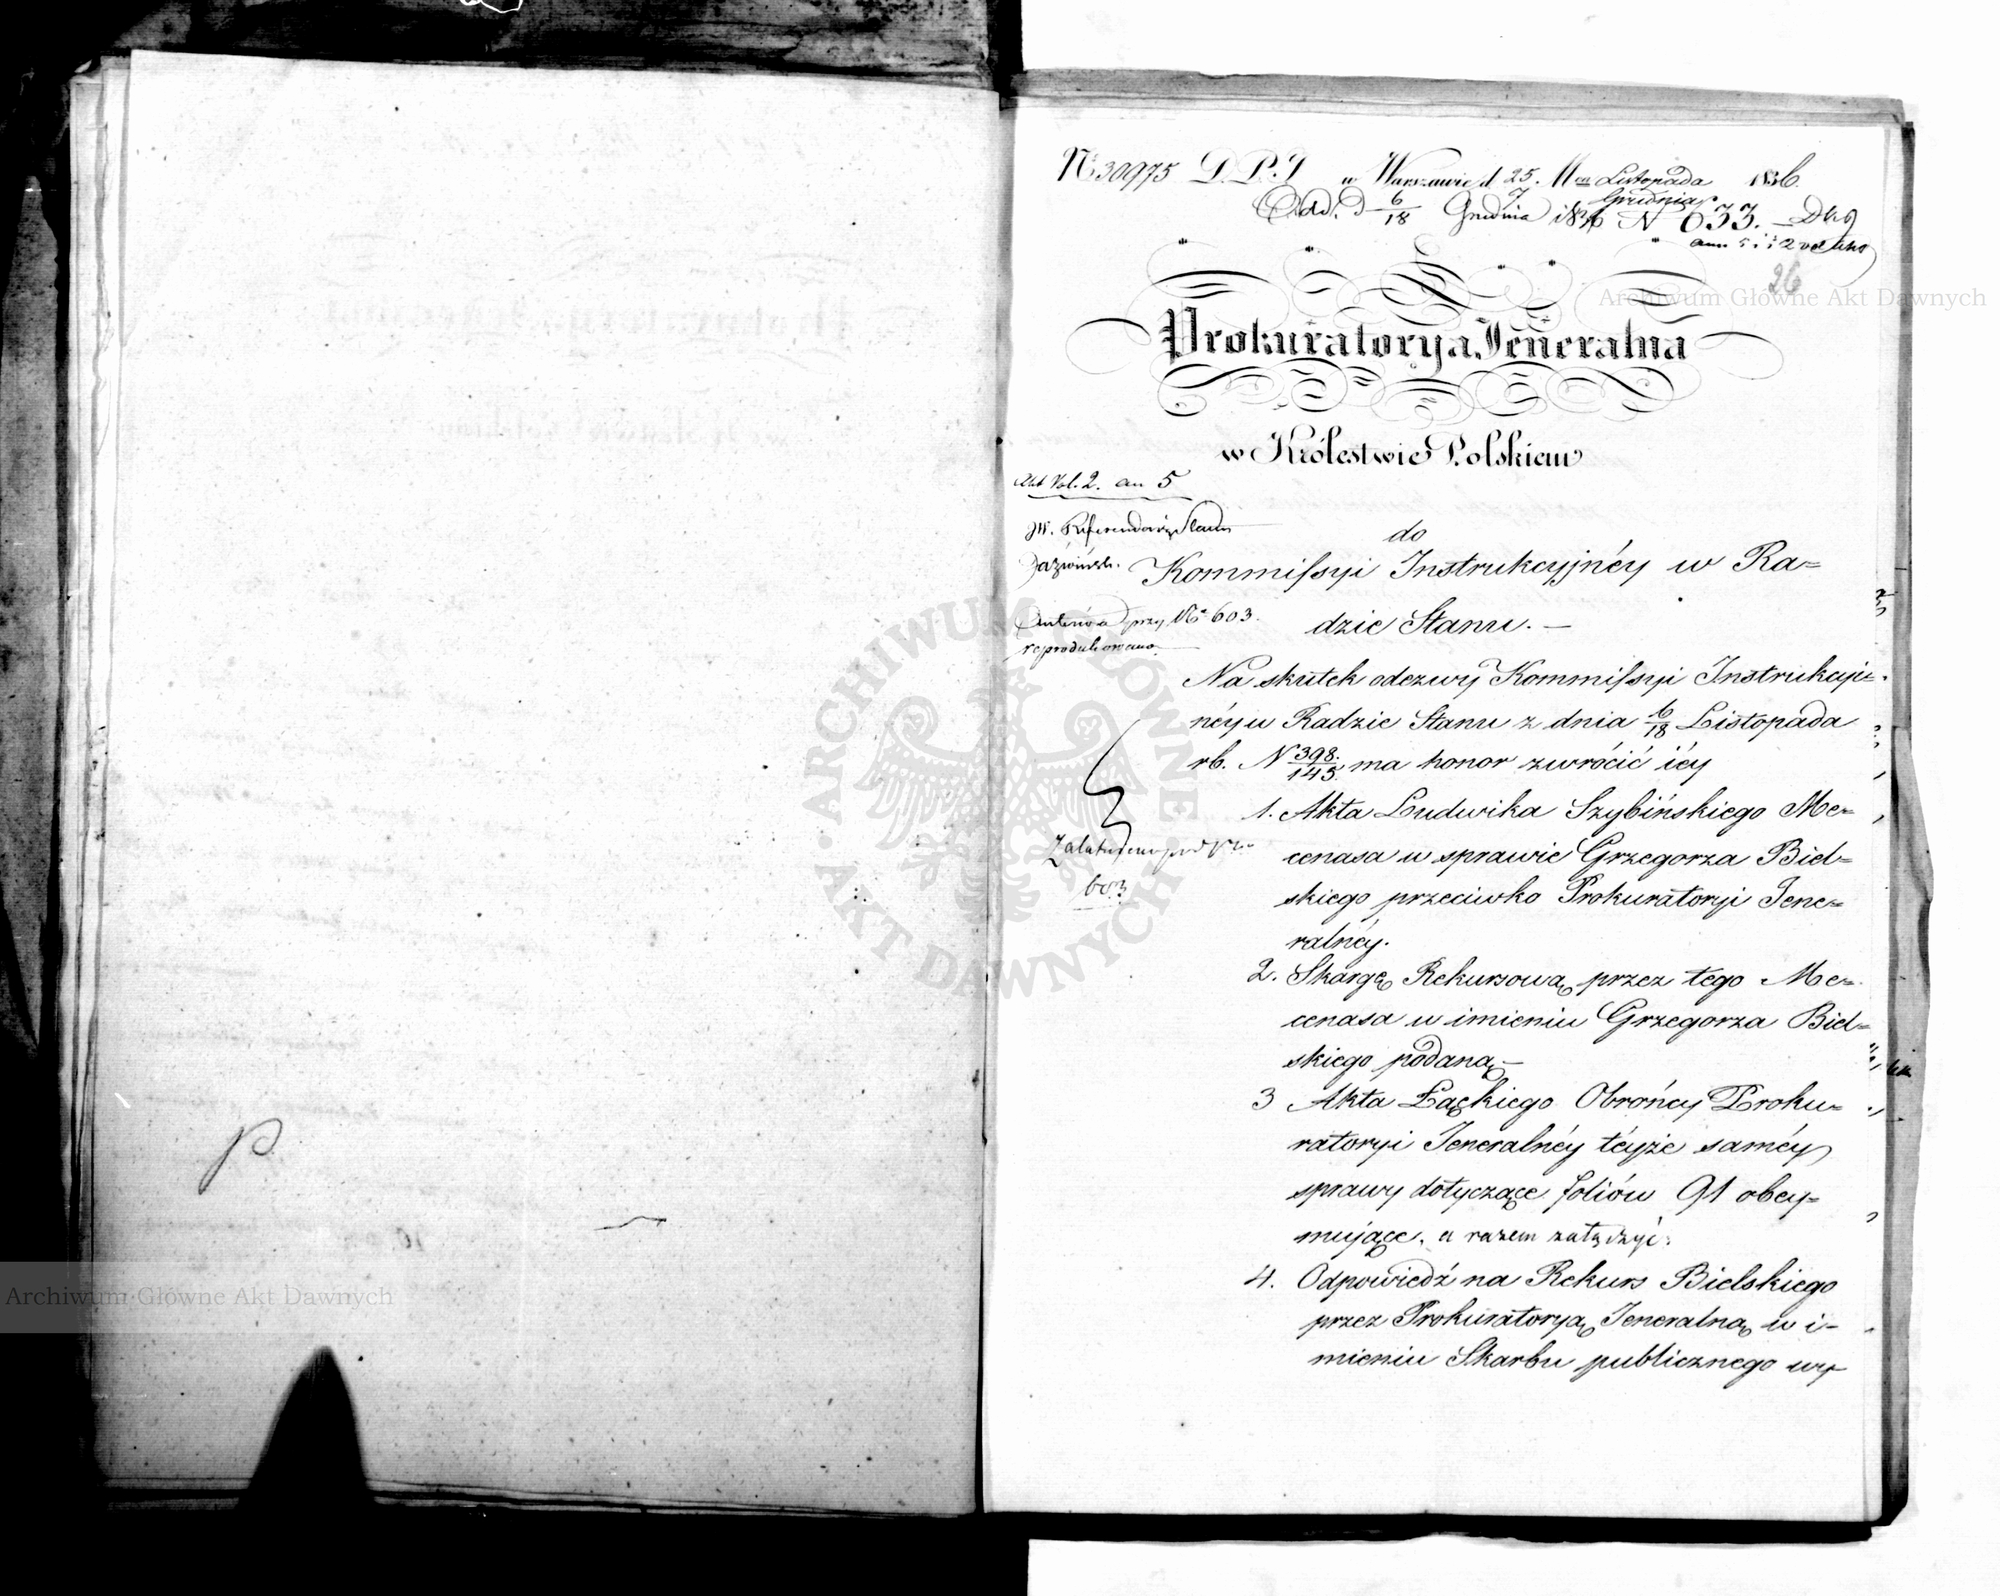 N: 30975 D. P. J w Warszawie d. 25. Mca Listopada 1836.
7 Grudnia
Odd. D 6/18 Grudnia 1836 N 633.
26
Prokuratorya Jeneralna
w Królestwie Polskiem
Akt Vol. 2. an 5
JW. Referendarz Stanu
do
Kommissyi Instrukcyjnéy w Ra=
przy No 603.
dzie Stanu. —
reprodukowano.
Na skutek odezwy Kommissyi Instrukcyi=
néy w Radzie Stanu z dnia 6/18 Listopada
rb. N 398./145. ma honor zwrócić iéy
1. Akta Ludwika Szybińskiego Me=
cenasa w sprawie Grzegorza Biel=
skiego przeciwko Prokuratoryi Jene=
ralnéy.
603
2. Skargę Rekursową przez tego Me=
cenasa w imieniu Grzegorza Biel=
skiego podaną —
3 Akta Łąckiego Obrońcy Proku=
ratoryi Jeneralnéy téyże saméy
sprawy dotyczące foliów 91 obey=
mujące, a razem
4. Odpowiedź na Rekurs Bielskiego
przez Prokuratoryą Jeneralną w i=
mieniu Skarbu publicznego wy
Archiwum Główne Akt Dawnych
Archiwum Główne Akt Dawnych
ARCHIWUM GŁÓWNE AKT DAWNYCH